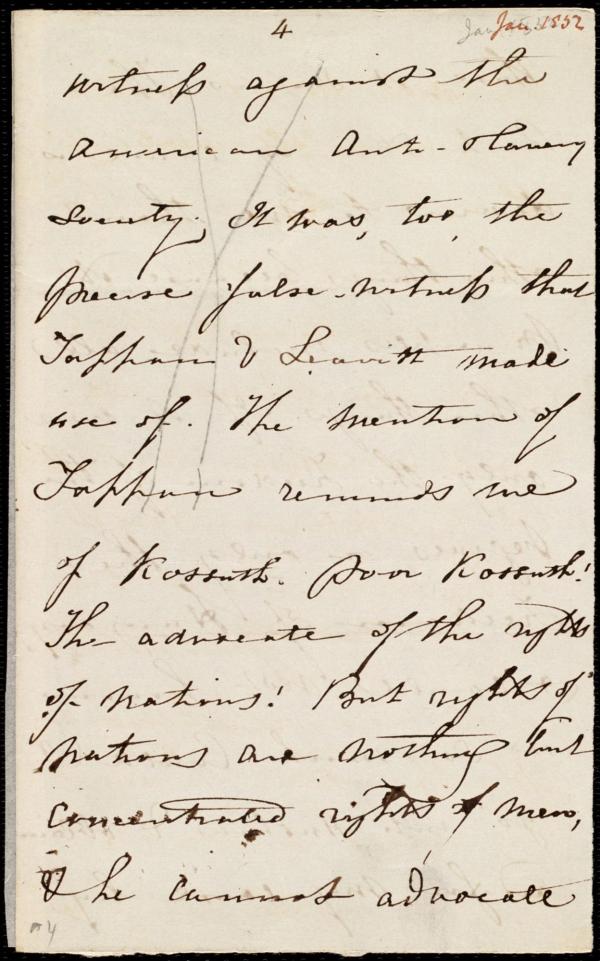 4
Jan. 1852
witness against the
American Anti-Slavery
Society. It was, too, the
precise false-witness that
Tappan & Leavitt made
use of. The mention of
Tappan reminds me
of Kossuth. Poor Kossuth!
The advocate of the rights
of nations! But rights of
nations are nothing but
concentrated rights of men,
& he cannot advocate